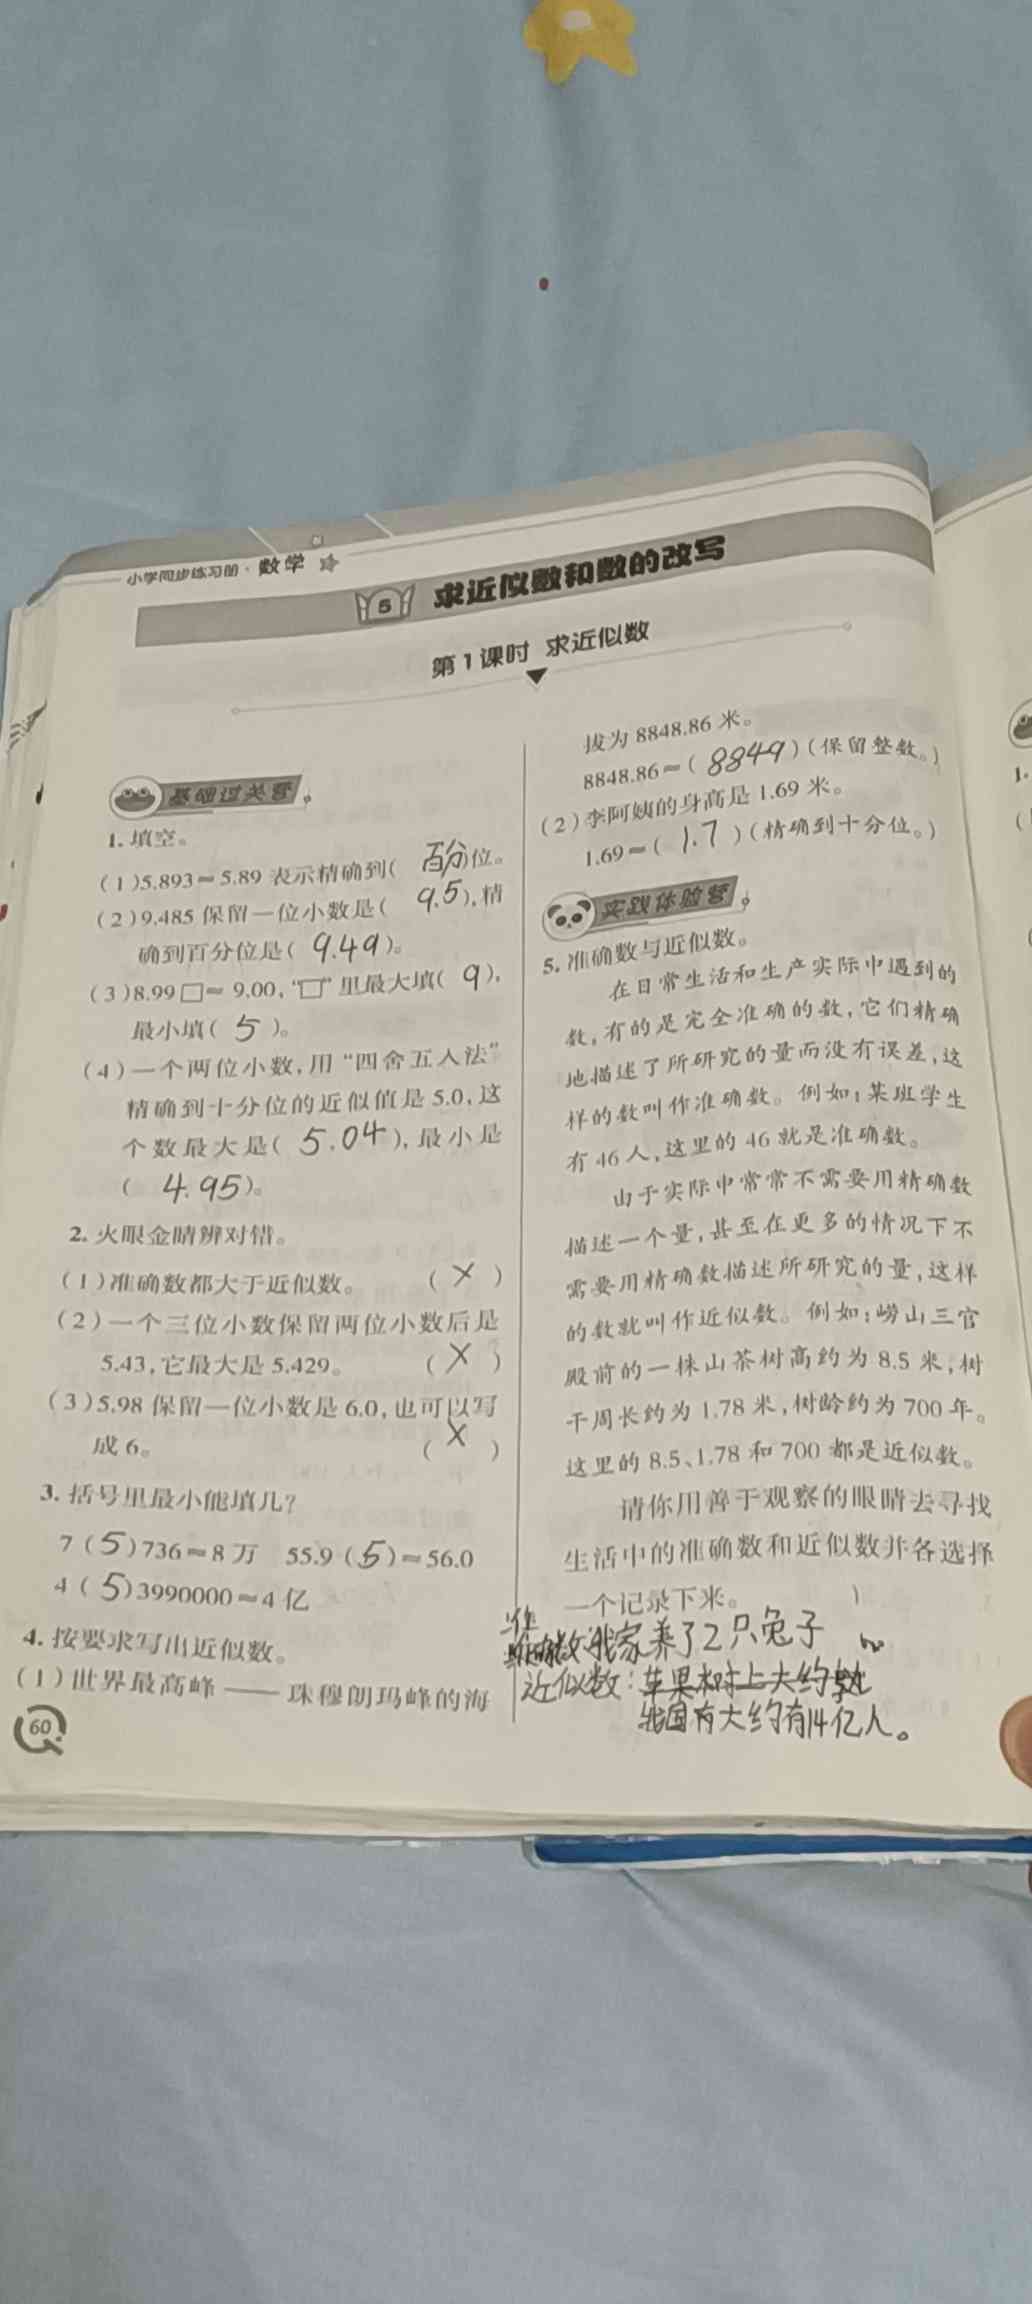 小学同步练习册·数学
5 求近似数和数的改写
第1课时 求近似数
基础过关营
1. 填空。
(1)5.893≈5.89 表示精确到(百分)位。
(2)9.485 保留一位小数是(9.5),精
确到百分位是(9.49)。
(3)8.99□≈9.00,“□”里最大填(9),
最小填(5)。
(4)一个两位小数,用“四舍五入法”
精确到十分位的近似值是5.0,这
个数最大是(5.04),最小是
(4.95)。
2. 火眼金睛辨对错。
(1)准确数都大于近似数。 (×)
(2)一个三位小数保留两位小数后是
5.43,它最大是5.429。 (×)
(3)5.98 保留一位小数是6.0,也可以写
成6。 (×)
3. 括号里最小能填几?
7(5)736≈8万 55.9(5)≈56.0
4(5)3990000≈4亿
4. 按要求写出近似数。
(1)世界最高峰——珠穆朗玛峰的海
60
拔为8848.86米。
8848.86≈(8849)(保留整数。)
(2)李阿姨的身高是1.69米。
1.69≈(1.7)(精确到十分位。)
实践体验营
5. 准确数与近似数。
在日常生活和生产实际中遇到的
数,有的是完全准确的数,它们精确
地描述了所研究的量而没有误差,这
样的数叫作准确数。例如:某班学生
有46人,这里的46就是准确数。
由于实际中常常不需要用精确数
描述一个量,甚至在更多的情况下不
需要用精确数描述所研究的量,这样
的数就叫作近似数。例如:崂山三官
殿前的一株山茶树高约为8.5米,树
干周长约为1.78米,树龄约为700年。
这里的8.5、1.78和700都是近似数。
请你用善于观察的眼睛去寻找
生活中的准确数和近似数并各选择
一个记录下来。
准
确数:我家养了2只兔子
近似数:苹果树上大约
我国有大约有14亿人。
1.